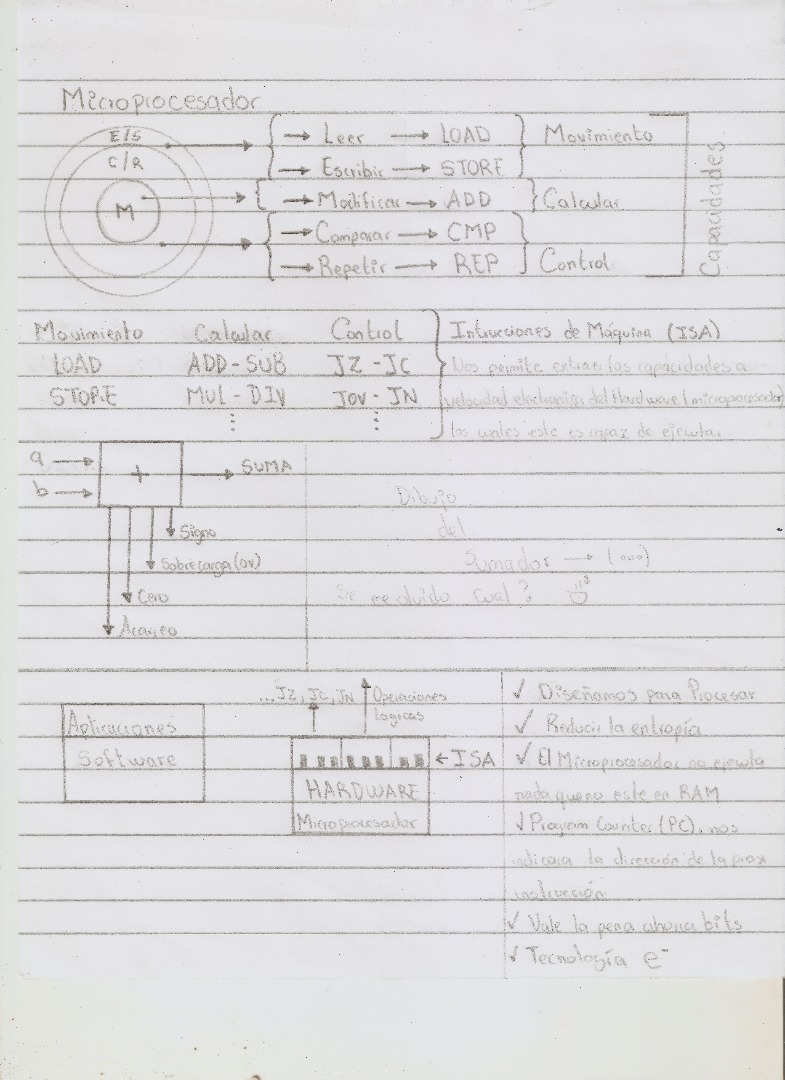 Microprocesador
E/S
→ Leer → LOAD
Movimiento
C/R
→ Escribir → STORE
M
→ Modificar → ADD
Calcular
→ Comparar → CMP
→ Repetir → REP
Control
Capacidades
Movimiento Calcular Control
LOAD ADD-SUB JZ-JC
STORE MUL-DIV JOV-JN
Intrucciones de Máquina (ISA)
Nos permite extraer las capacidades a
velocidad electronica del Hardware (microprocesador)
las cuales este es capaz de ejecutar.
a →
b →
+
→ SUMA
Signo
Sobrecarga (OV)
Cero
Acarreo
Dibujo
del
Sumador →
Se
cual?
Aplicaciones
Software
...JZ, JC, JN
Operaciones
Logicas
← ISA
HARDWARE
Microprocesador
✓ Diseñamos para Procesar
✓ Reducir la entropía
✓ El Microprocesador no ejecuta
nada que no este en RAM
✓ Program Counter (PC), nos
indicara la dirección de la prox
instrucción
✓ Vale la pena ahorra bits
✓ Tecnología e⁻